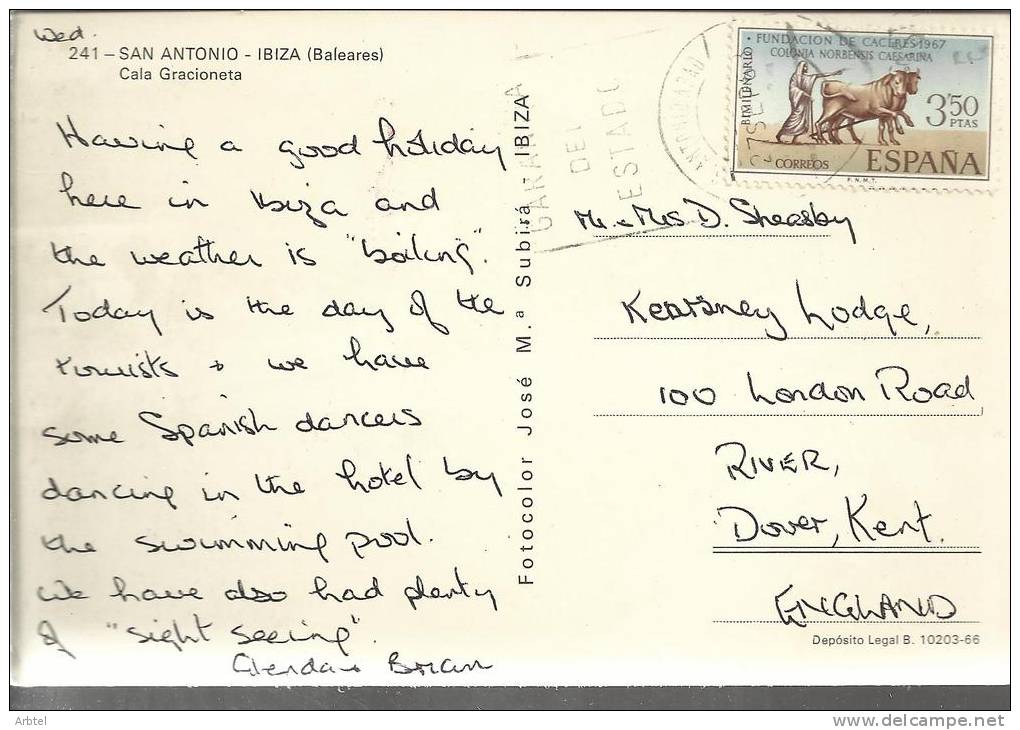 Wed.
241 – SAN ANTONIO - IBIZA (Baleares)
Cala Gracioneta
Having a good holiday
here in Ibiza and
the weather is "boiling".
Today is the day of the
tourists + we have
some Spanish dancers
dancing in the hotel by
the swimming pool.
We have also had plenty
of "sight seeing".
Glenda + Brian
Fotocolor José M.ª Subirá IBIZA
DEL
ESTADO
BIMILENARIO
FUNDACION DE CACERES-1967
COLONIA NORBENSIS CAESARINA
3'50
PTAS
CORREOS
ESPAÑA
F.N.M.T.
Mr. & Mrs D. Sheasby
Kearsney Lodge,
100 London Road
RIVER,
Dover, Kent.
ENGLAND
Depósito Legal B. 10203-66
Arbtel
delcampe.net